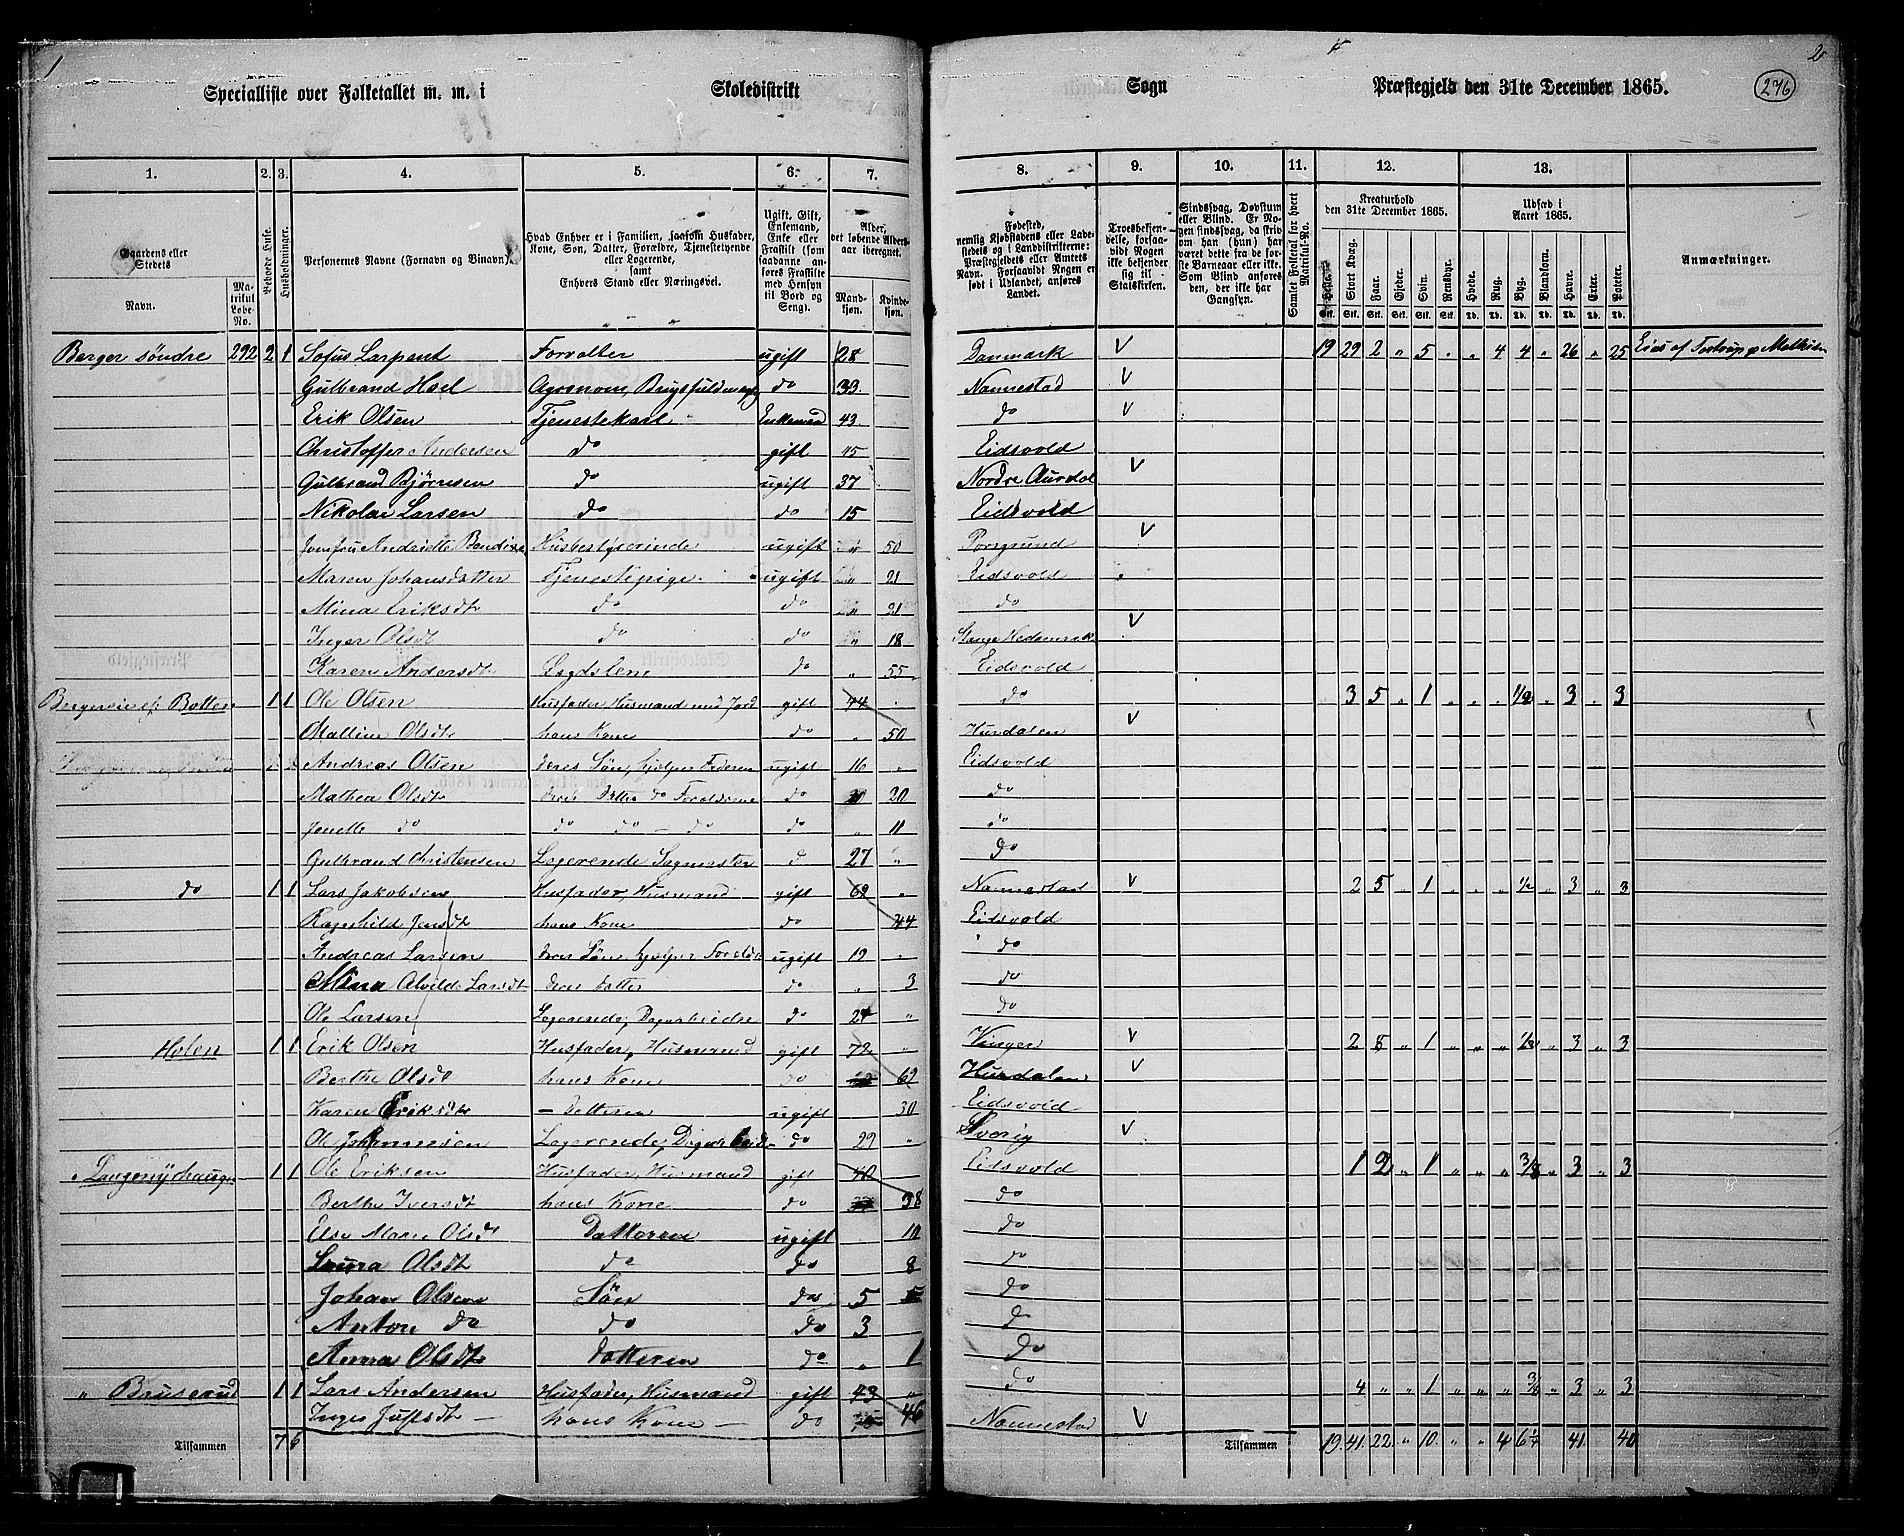 1
Specialliste over Folketallet m. m. i Skoledistrikt Sogn Præstegjeld den 31te December 1865.
2
276
1. 2. 3. 4. 5. 6. 7. 8. 9. 10. 11. 12. 13.
Gaardens eller Stedets
Navn.
Matrikul Løbe-No.
Beboede Huse.
Husholdninger.
Personernes Navne (Fornavn og Binavn).
Hvad Enhver er i Familien, saasom Husfader, Kone, Søn, Datter, Forældre, Tjenestetyende eller Logerende, samt Enhvers Stand eller Næringsvei.
Ugift, Gift, Enkemand, Enke eller Fraskilt (som saadanne anføres Fraskilte med Hensyn til Bord og Seng).
Alder, det løbende Aldersaar iberegnet.
Mandkjøn. Kvindekjøn.
Fødested, nemlig Kjøbstadens eller Ladestedets og i Landdistrikterne: Præstegjeldets eller Amtets Navn. Forsaavidt Nogen er født i Udlandet, anføres Landet.
Troesbekjendelse, forsaavidt Nogen ikke bekjender sig til Statskirken.
Sindssvag, Døvstum eller Blind. Er Nogen sindssvag, da skriv om han (hun) har været dette fra de første Barneaar eller ikke. Som Blind anføres den, der ikke har Gangsyn.
Samlet Folketal for hvert Matrikul-No.
Kreaturhold den 31te December 1865.
Heste. Stort Kvæg. Faar. Gjeder. Svin. Rensdyr.
Udsæd i Aaret 1865.
Hvede. Rug. Byg. Blandkorn. Havre. Erter. Poteter.
Anmærkninger.
Berger søndre 292 2 1 Sofus Larpent Forvalter ugift 28 Danmark V 19 29 2 " 5 . . 4 4 . 26 . 25 Eies af
Gulbrand Hoel Agronom, do 33 Nannestad V
Erik Olsen Tjenestekarl Enkemand 43 do V
Christoffer Andersen do gift 45 Eidsvold
Gulbrand Bjørnsen do ugift 37 Nordre Aurdal V
Nikolai Larsen do do 15 Eidsvold
Jomfru Andriette Husbestyrerinde ugift " 50 Porsgrund V
Maren Johansdatter Tjenestepige ugift " 21 Eidsvold
Mina Eriksdt do do " 21 do
Inger Olsdt do do " 18 Stange Hedemark V
Karen Andersdt Lægdslem do " 55 Eidsvold
Botten 1 1 Ole Olsen Husfader Husmand med Jord gift 44 . do 3 5 " 1 . . 1/2 . 3 . 3
Olsdt hans Kone do " 50 Hurdalen V
Andreas Olsen deres Søn, hjælper Faderen ugift 16 " Eidsvold
Mathea Olsdt deres Datter do Forældrene do 20 do
Jonette do do do - do do " 11 do
Gulbrand Christensen Logerende Sagmester d 27 " do
do 1 1 Lars Jakobsen Husfader, Husmand gift 69 " Nannestad V 2 5 . 1 . . 1/2 . 3 . 3
Ragnhild Jensdt hans Kone do 44 Eidsvold
Andreas Larsen deres Søn hjælper ugift 19 " do
Mina Alvilde Larsdt deres Datter do " 3 do
Ole Larsen Logerende, Dagarbeider do 24 " do
Holen 1 1 Erik Olsen Husfader, Husmand gift 72 " Vinger V 2 8 " 1 " " 1/2 " 3 " 3
Berthe Olsdt hans Kone do 62 Hurdalen V
Karen Eriksdt - Datteren ugift 30 Eidsvold
Ole Johannesen Logerende, do 29 " Sverig V
1 1 Ole Eriksen Husfader, Husmand gift 40 Eidsvold 1 2 " 1 " " 3/8 " 3 " 3
Berthe Iversdt hans Kone do 38 do
Else Marie Olsdt Datteren ugift 10 do
Laura Olsdt do do 8 do
Johan Olsen Søn do 5 do
Anton do do do 3 do
Anna Olsdt Datteren do " 1 do
" Bruserud 1 1 Lars Andersen Husfader, Husmand gift 43 " do 4 " " 1 " " 3/4 " 3 " 3
Inger - hans Kone - do 46 Nannestad V
Tilsammen 7 6 Tilsammen 19 41 22 " 10 " " 4 6 1/4 41 40